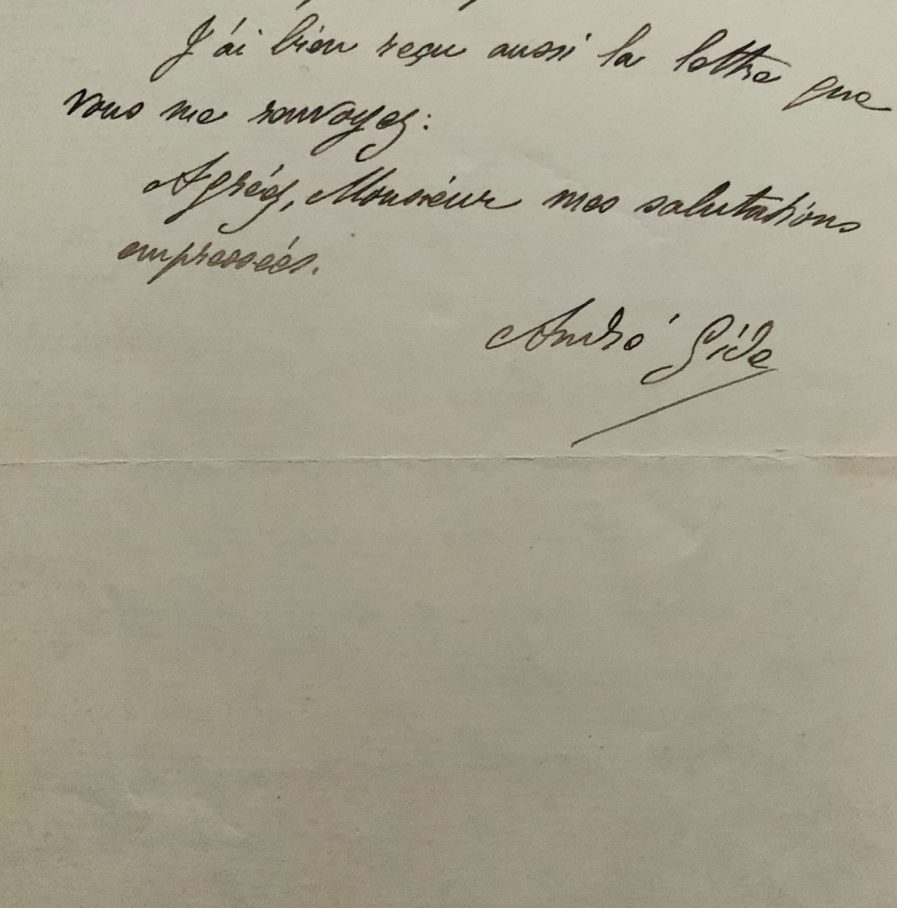 J'ai bien reçu aussi la lettre que
vous me renvoyez.
Agréez, Monsieur mes salutations
empressées.
André Gide